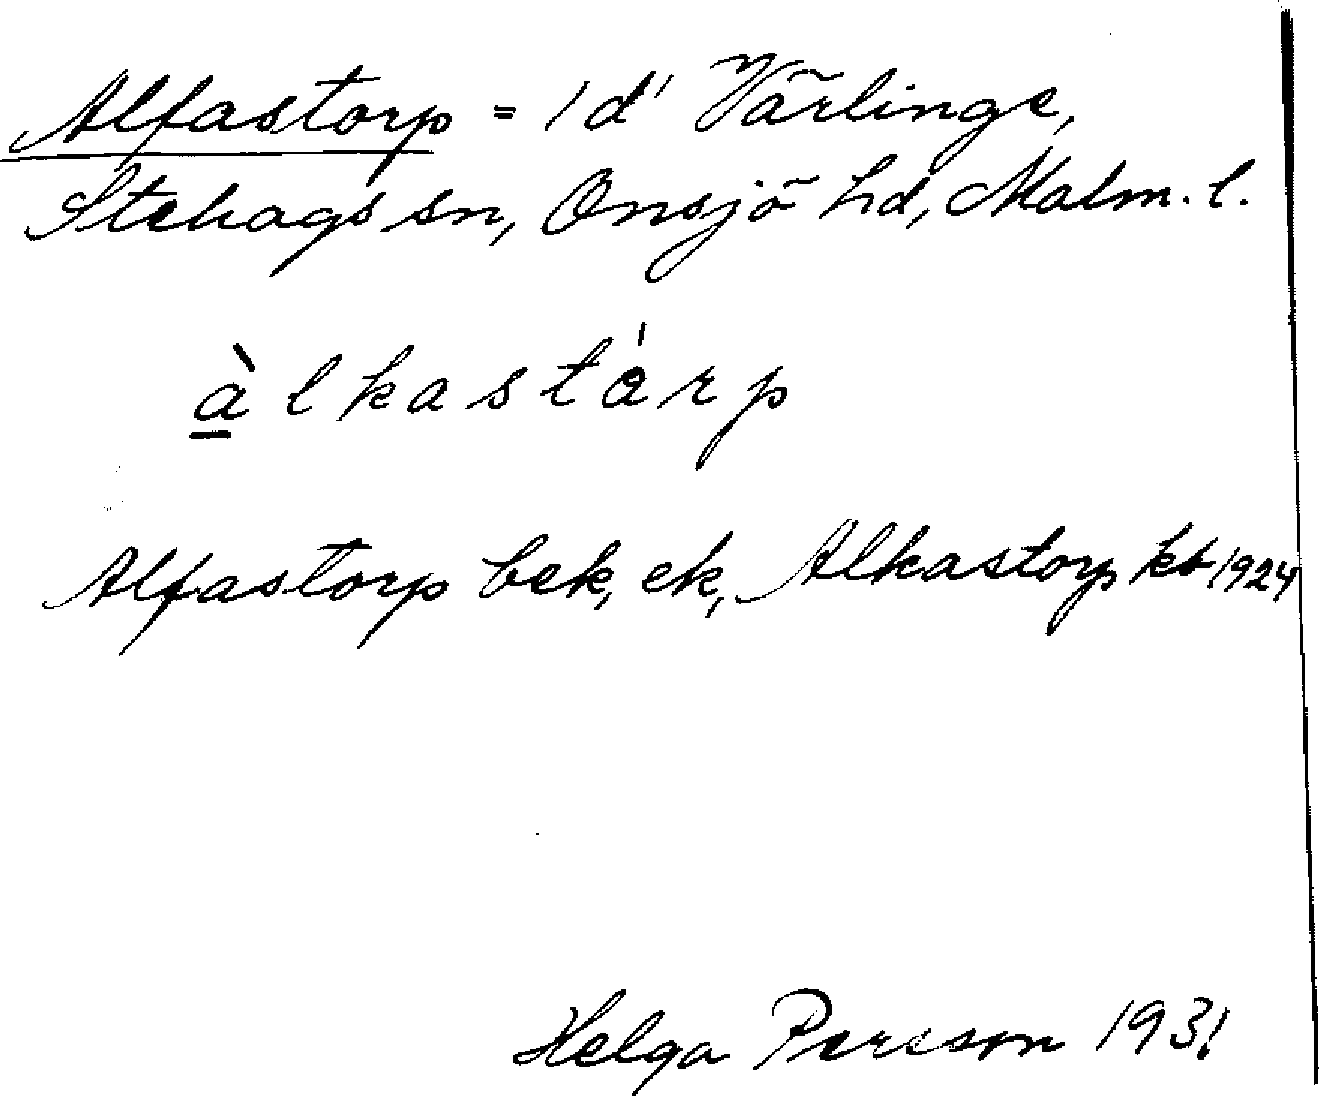 Alfastorp = 1 d' Värlinge,
Stehags sn, Onsjö hd, Malm. l.
àlkastárp
Alfastorp bek, ek, Alkastorp kb 1924
Helga Persson 1931